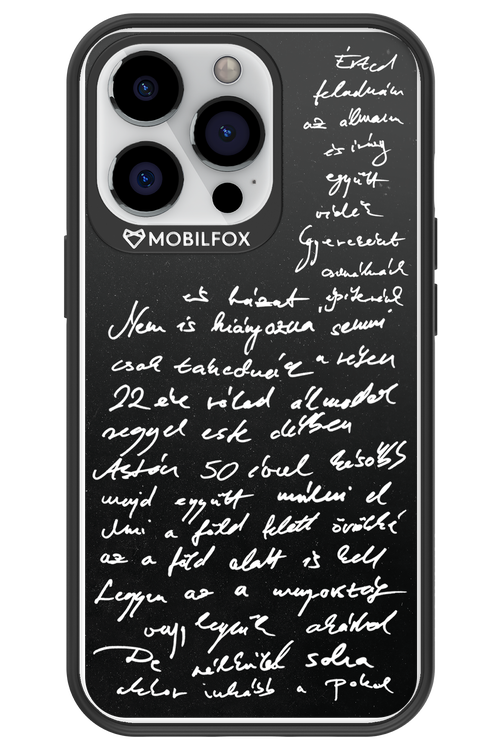 MOBILFOX
Érted
feladnám
az álmaim
és így
együtt
Gyerekeint
csinálnánk
és házat építenénk
Nem is hiányozna semmi
csak takednáz a réten
22 éve rólad álmodok
reggel este délben
Aztán 50 évvel később
majd együtt múlni el
Ami a föld felett örökké
az a föld alatt is kell
Legyen az a mennyország
vagy legyünk akárhol
De nélküled soha
akkor inkább a Pokol